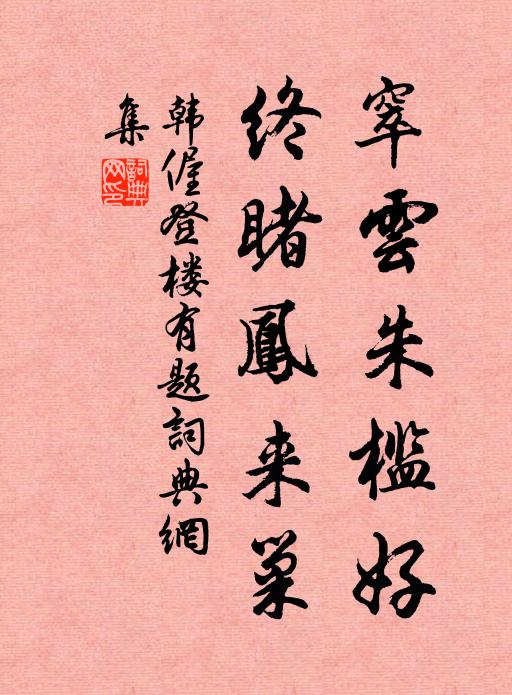 窣雲朱檻好
終睹鳳來巢
韩偓登楼有题詞典網
集
詞典網印